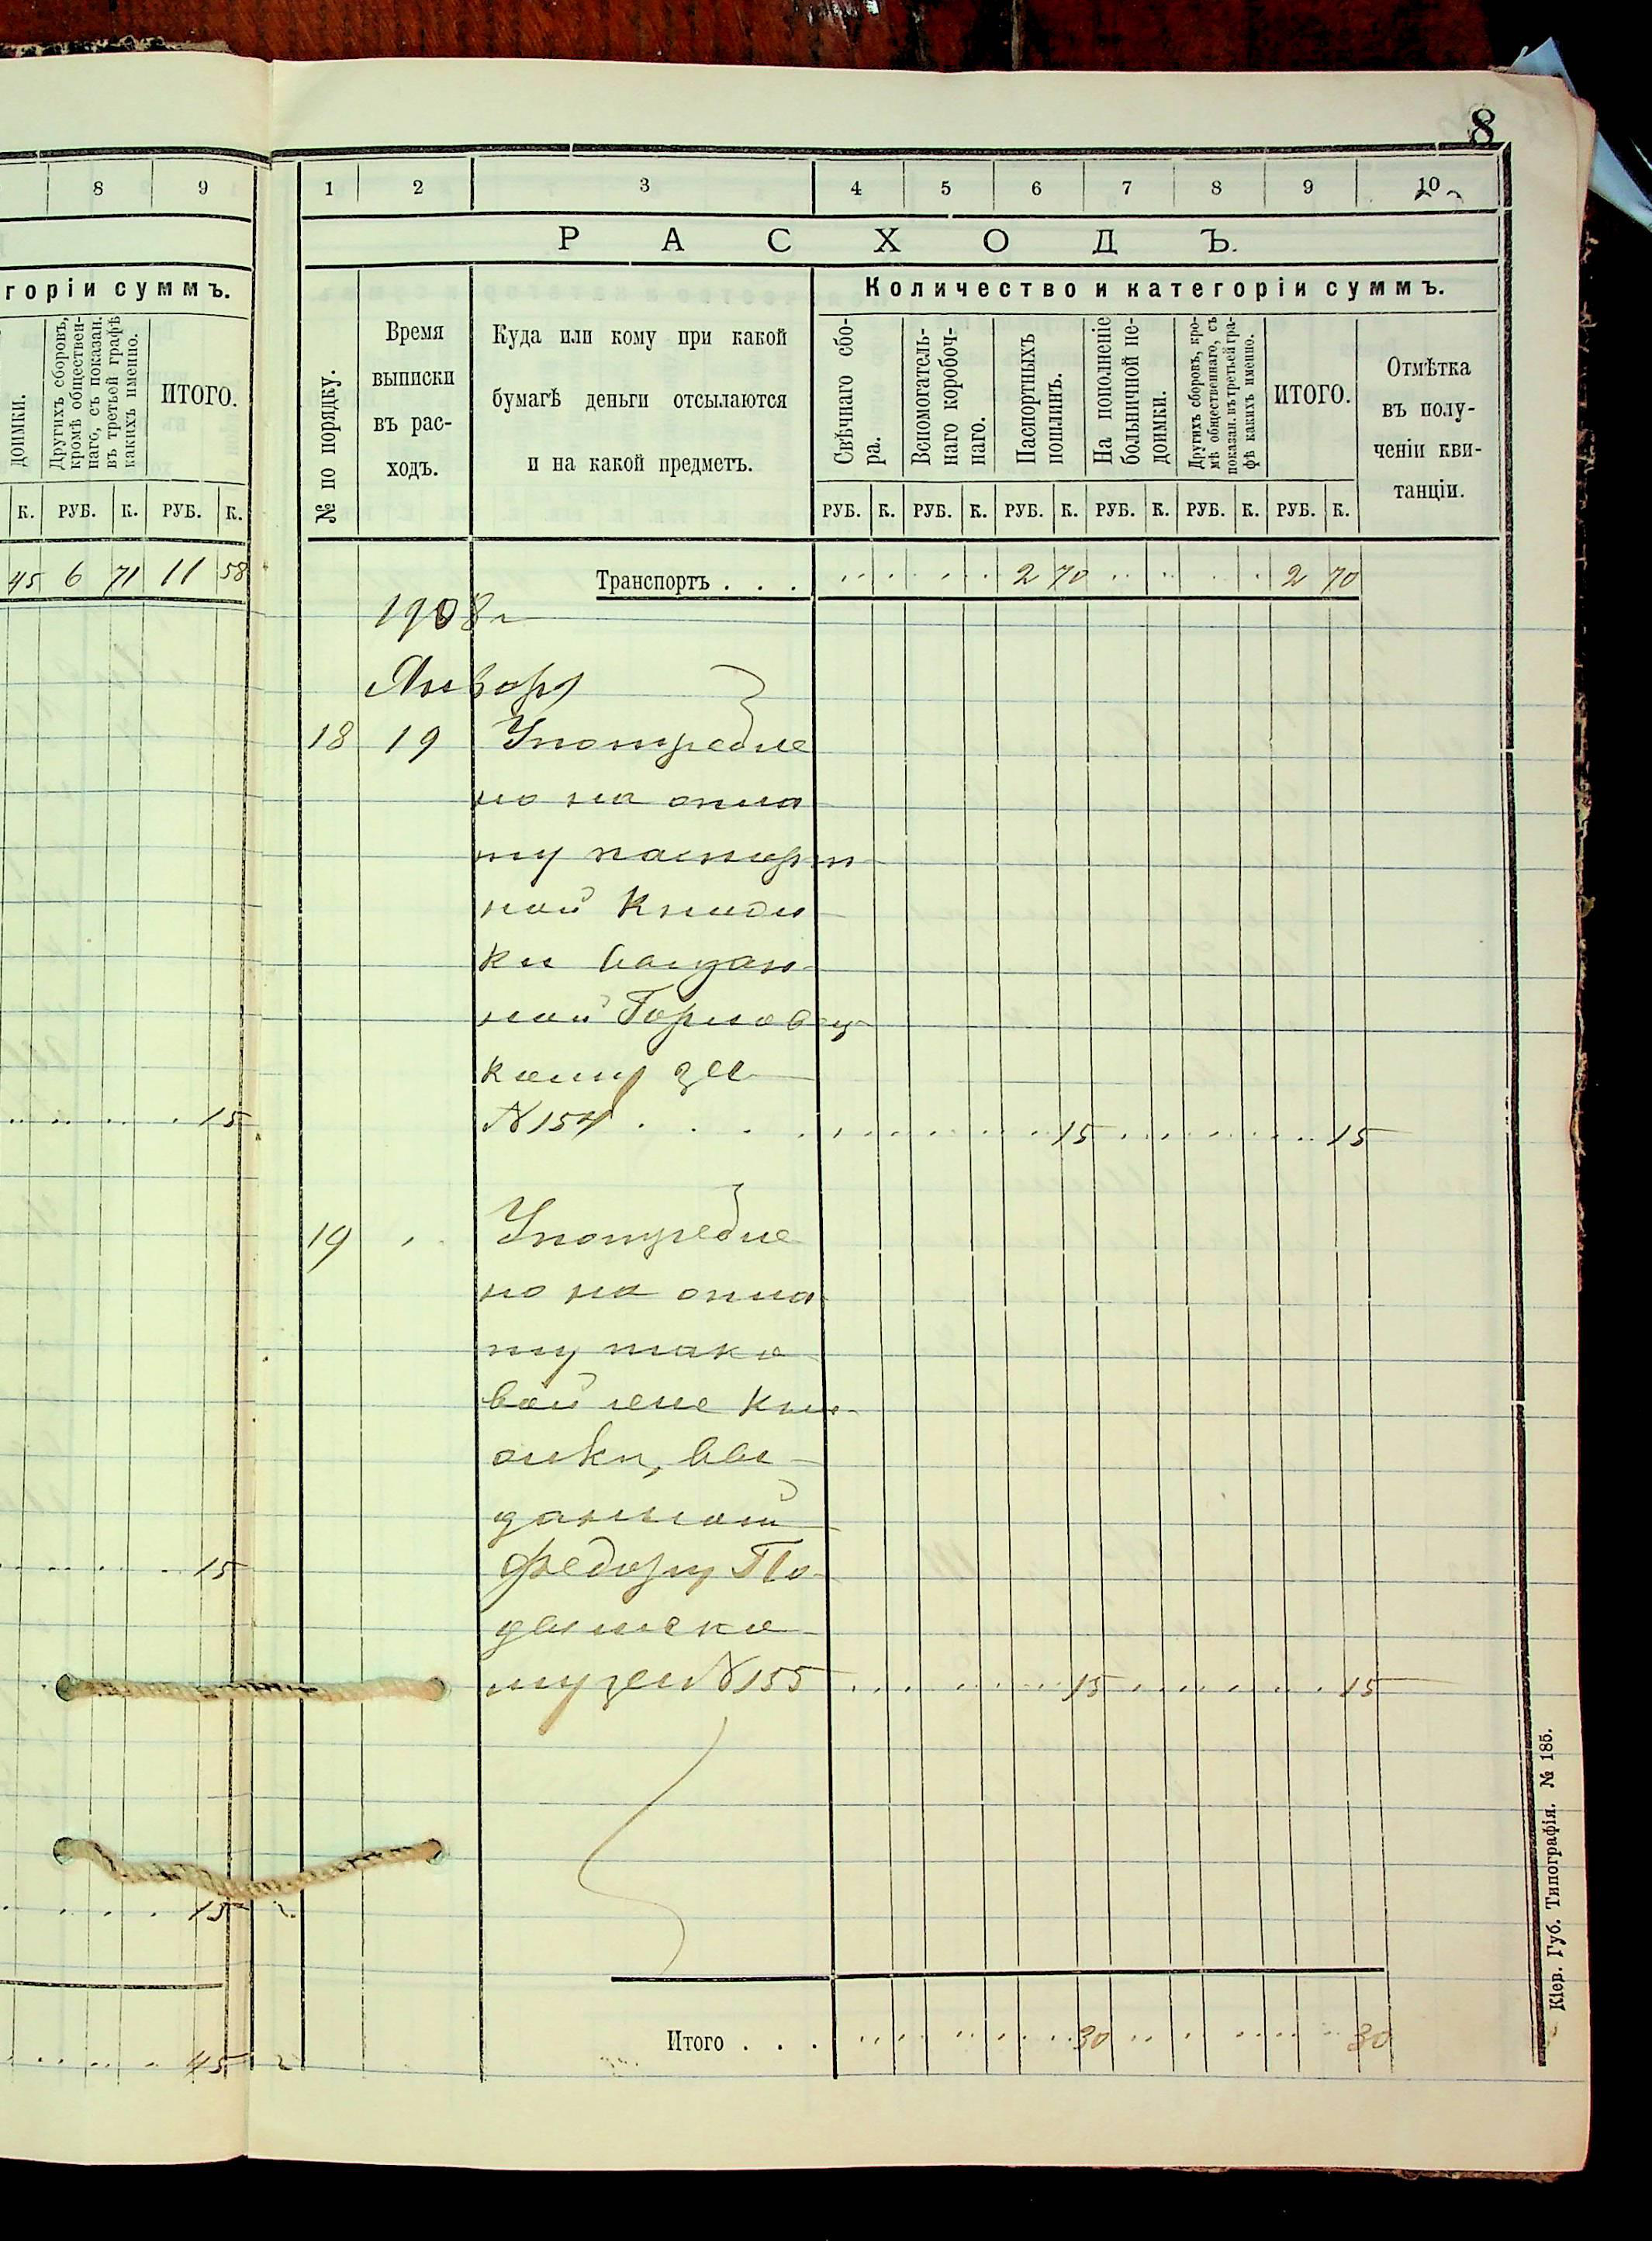 8
8 9
горіи суммъ.
доимки.
Другихъ сборовъ,
кромѣ обществен-
наго, съ показан.
въ третьей графѣ
какихъ именно.
ИТОГО.
К. РУБ. К. РУБ. К.
45 6 71 11 58
15
15
15
45
1 2 3 4 5 6 7 8 9 10
РАСХОДЪ.
Количество и категоріи суммъ.
№ по порядку.
Время
выписки
въ рас-
ходъ.
Куда или кому при какой
бумагѣ деньги отсылаются
и на какой предметъ.
Свѣчнаго сбо-
ра.
Вспомогатель-
наго коробоч-
наго.
Паспортныхъ
пошлинъ.
На пополненіе
больничной не-
доимки.
Другихъ сборовъ, кро-
мѣ общественнаго, съ
показан. въ третьей гра-
фѣ какихъ именно.
ИТОГО.
Отмѣтка
въ полу-
ченіи кви-
танціи.
РУБ. К. РУБ. К. РУБ. К. РУБ. К. РУБ. К. РУБ. К.
Транспортъ . . . 2 70 2 70
1908 г
Января
18 19 Употребле
но на опла
ту паспорт
ной книж
ки выдан-
ной
кому за
№ 154 . . . . 15 15
19 Употребле
но на опла
ту тако
вой же кни-
жки, вы-
данной
Федору По-
му за № 155 15 15
Итого . . . 30 30
Кіев. Губ. Типографія. № 185.